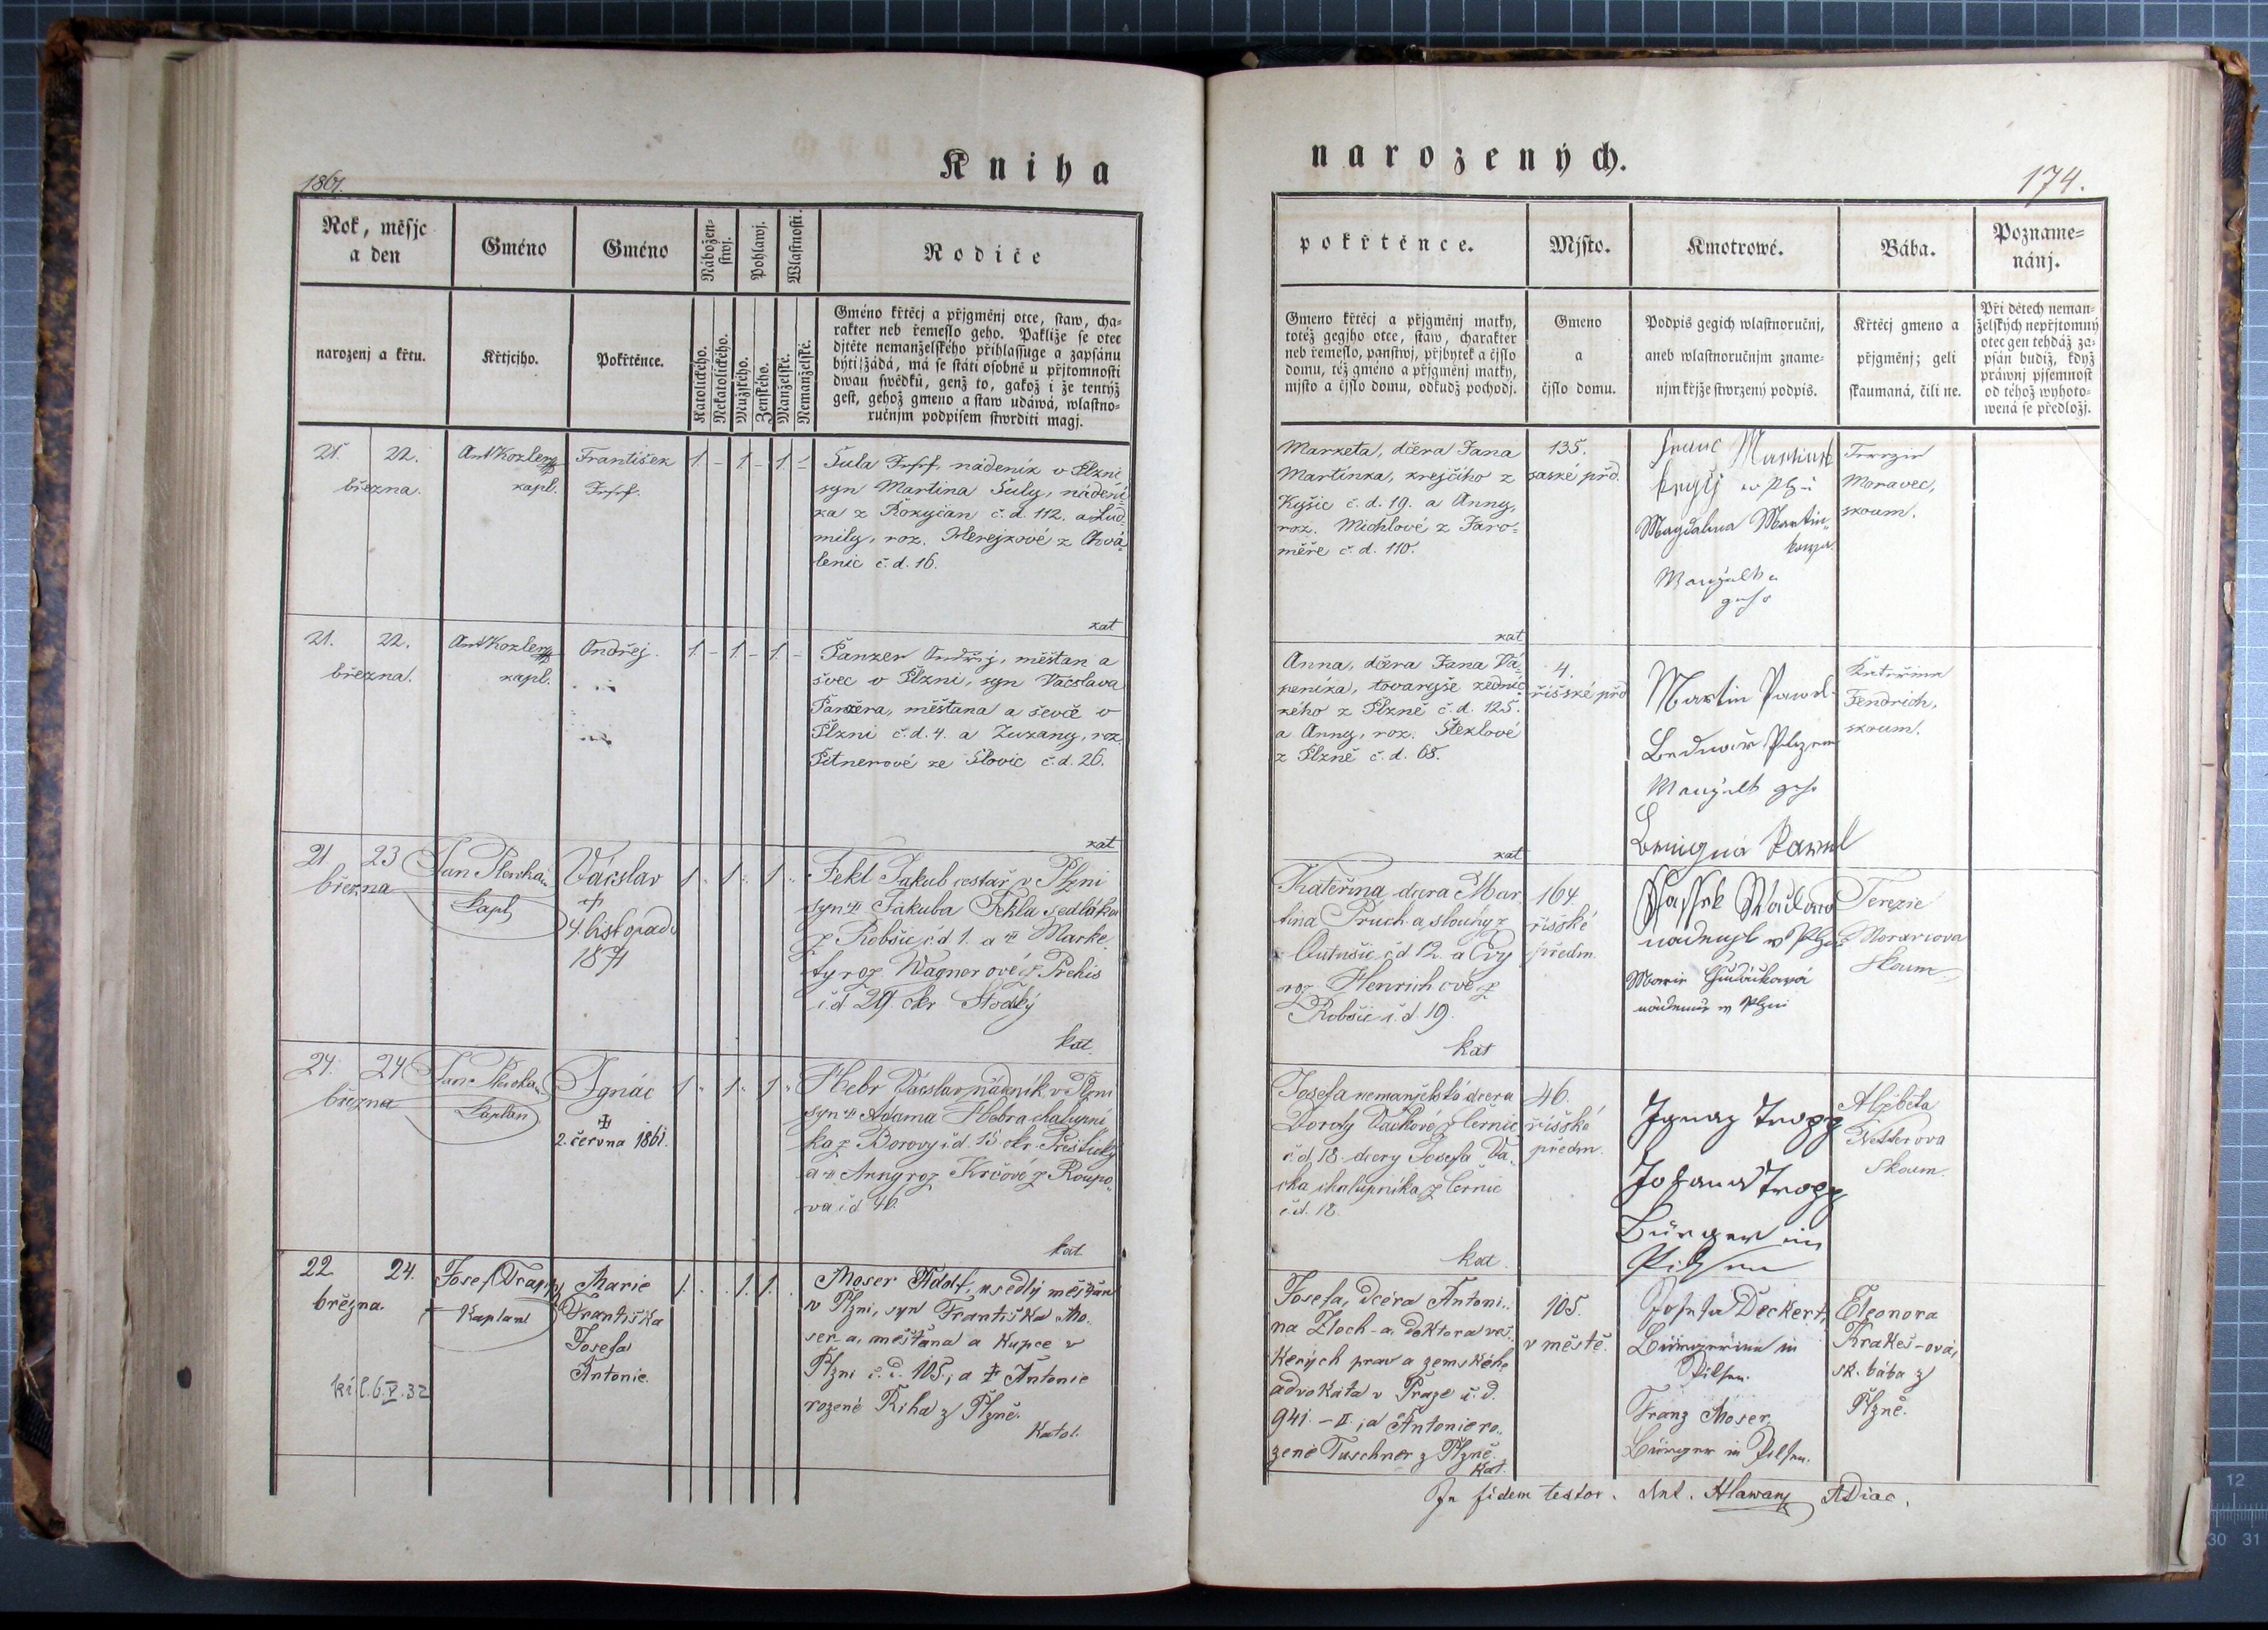 1861.
Kniha
Rok, měsjc
a den
Gméno
Gméno
Nábožen-
stwj.
Pohlawj.
Wlastnosti.
Rodiče
narozenj a křtu.
Křtjcjho.
Pokřtěnce.
Katolického.
Nekatolického.
Mužského.
Ženského.
Manželské.
Nemanželské.
Gméno křtěcj a přjgměnj otce, staw, cha-
rakter neb řemeslo geho. Pakliže se otec
djtěte nemanželského přihlassuge a zapsánu
býti žádá, má se státi osobně u přjtomnosti
dwau swědků, genž to, gakož i že tentýž
gest, gehož gmeno a staw udáwá, wlastno-
ručnjm podpisem stwrditi magj.
21. 22.
března.
Ant Kozler
kapl.
František
Josef.
1. - 1 - 1. -
Šula Josef, nádeník v Plzni
syn Martina Šuly, nádení-
ka z Rokycan č. d. 112. a Lud-
mily, roz. Herejkové z Chvá-
lenic č. d. 16.
kat
21. 22.
března.
Ant Kozler
kapl.
Ondřej.
1. - 1. - 1. -
Panzer Ondřej, měštan a
švec v Plzni, syn Vácslava
Panzera, měštana a ševče v
Plzni č. d. 4. a Zuzany, roz.
Pitnerové ze Slovic č. d. 26.
kat
21 23
března
Jan
Kapl
Vácslav
4. listopadu
1871
1 1 1
Fekl Jakub cestář v Plzni
syn Jakuba Fekla sedláka
z Robšic č. d 1. a Marke
ty roz Wagnerové z Prehis
č. d 29. okr Stodský
kat.
24. 24
března
Jan
Kaplan
Ignác
2. června 1861.
1 1 1
Hebr Vácslav nádeník v Plzni
syn Adama Hebra chalupní
ka z Borovy č. d 15 okr. Přeštický
a Anny roz Krčové z Roupo
va č. d 40.
kat
22 24.
března.
Josef
Kaplan
Marie
Františka
Josefa
Antonie.
1. 1. 1.
Moser Adolf, usedlý měštan
v Plzni, syn Františka Mo-
ser-a, měštana a kupce v
Plzni č. d. 105., a Antonie
rozené Řiha z Plzně.
Katol.
6. V. 32
narozených.
174.
pokřtěnce.
Mjsto.
Kmotrowé.
Bába.
Pozname-
nánj.
Gmeno křtěcj a přjgměnj matky,
totéž gegjho otce, staw, charakter
neb řemeslo, panstwj, přjbytek a čjslo
domu, též gméno a přjgměnj matky,
mjsto a čjslo domu, odkudž pochodj.
Gmeno
a
čjslo domu.
Podpis gegich wlastnoručnj,
aneb wlastnoručnjm zname-
njm křjže stwrzený podpis.
Křtěcj gmeno a
přjgměnj; geli
skaumaná, čili ne.
Při dětech neman-
želských nepřjtomný
otec gen tehdáž za-
psán budiž, když
práwnj pjsemnost
od téhož wyhoto-
wená se předložj.
Marketa, dcera Jana
Martinka, krejčího z
Kyšic č. d. 19. a Anny,
roz. Michlové z Jaro-
měře č. d. 110.
kat
135.
saské přd.
Magdalena Martin
Manželka
geho
Moravec,
skoum.
Anna, dcera Jana Vá-
peníka, tovaryše zednic-
kého z Plzně č. d. 125.
a Anny, roz. Štexlové
z Plzně č. d. 68.
kat
4.
říšské přd
Martin Pawel
Bednař
Manželk geho
Benigna Pawel
Kateřina
Fendrich,
skoum.
Kateřina dcera Mar
tina Pruch-a slouhy z
Outušic č. d 12. a Evy
roz Henrichové z
Robšic č. d. 19.
kat
164
říšské
předm.
Marie
nádenice w Plzni
Terezie
Moravcova
skoum
Josefa nemanželská dcera
Doroty Vackové z Černic
č. d. 18. dcery Josefa Va
cka chalupníka z Černic
č. d. 18.
kat.
46.
říšské
předm.
Ignaz Tropp
Johana Tropp
Bürger in
Pilsen
Alžběta
Netterova
Skoum.
Josefa, dcéra Antoni-
na Zloch-a, doktora veš-
kerých prav a zemského
advokáta v Praze č. d.
941. - II., a Antonie ro-
zené Tuschner z Plzně.
Kat.
105.
v městě.
Josefa Deckert,
Bürgerinn in
Pilsen.
Franz Moser,
Bürger in Pilsen.
Eleonora
Krakeš-ová,
sk. bába z
Plzně.
In fidem testor. Ant. Hlawan ADiac.
12
30 31